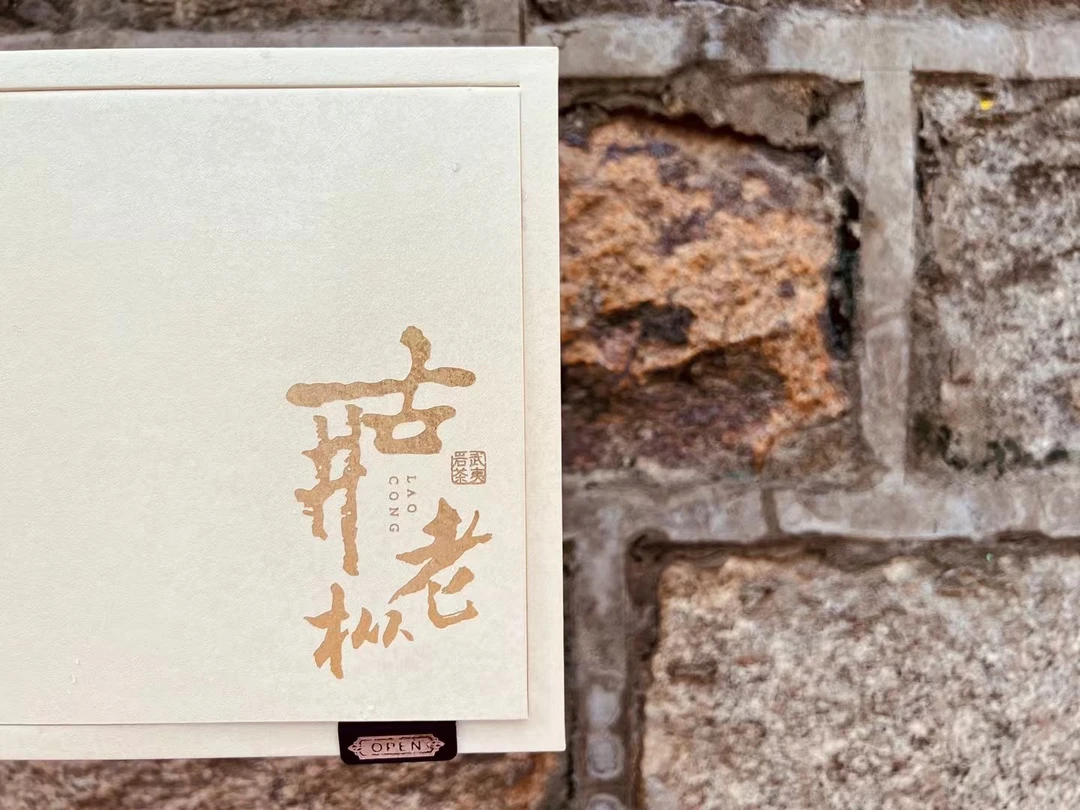 古井
老枞
LAO
CONG
武夷
岩茶
OPEN